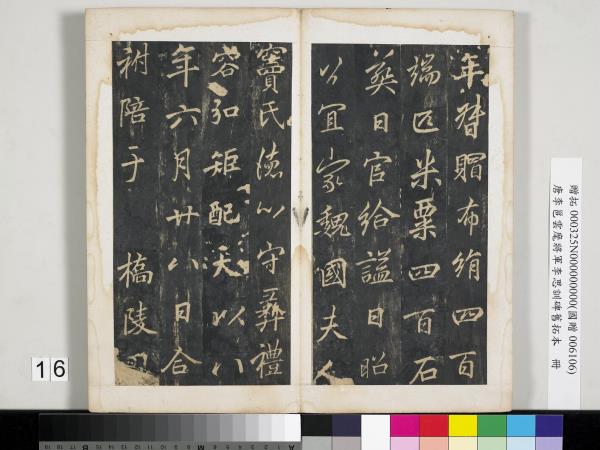 年賵賻布絹四百
端匹米粟四百石
葬日官給謚曰昭
公宜家魏國夫人
竇氏德以守彝禮
容弘矩配天以八
年六月廿八日合
祔陪于 橋陵
贈拓 000325N000000000(國贈 006106)
唐李邕雲麾將軍李思訓碑舊拓本 冊
16